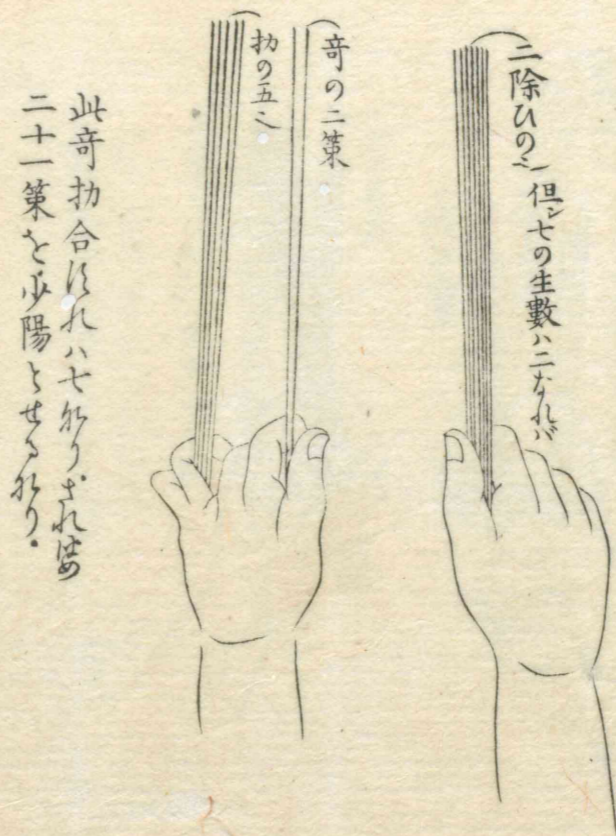 二除ひのミ
但シ七の生數ハ二なれバ
奇の二策
扐の五ミ
此奇扐合すれハ七なりされは
二十一策を少陽とせるなり。